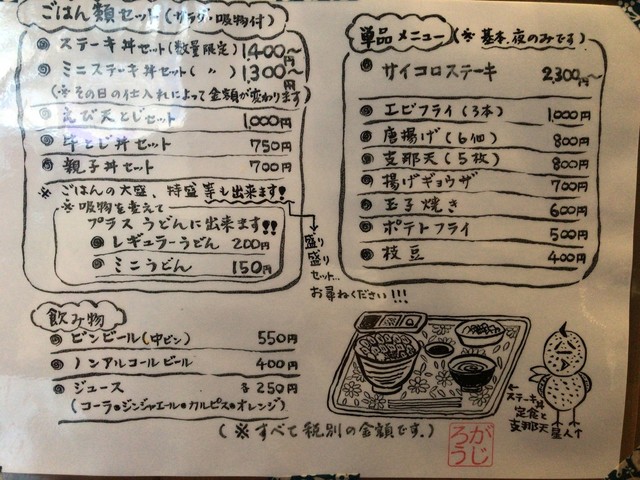 ごはん類セット(サラダ・吸物付)
ステーキ丼セット(数量限定) 1,400〜円
ミニステーキ丼セット(〃) 1,300〜円
(※その日の仕入れによって金額が変わります)
えび天とじセット 1,000円
牛とじ丼セット 750円
親子丼セット 700円
※ごはんの大盛、特盛等も出来ます!
※吸物を変えて
プラスうどんに出来ます!!
レギュラーうどん 200円
ミニうどん 150円
盛り
盛り
セット…
お尋ねください!!!
飲み物
ビンビール(中ビン) 550円
ノンアルコールビール 400円
ジュース 各250円
(コーラ・ジンジャエール・カルピス・オレンジ)
単品メニュー(※基本、夜のみです)
サイコロステーキ 2,300円〜
エビフライ(3本) 1,000円
唐揚げ(6個) 800円
支那天(5枚) 800円
揚げギョウザ 700円
玉子焼き 600円
ポテトフライ 500円
枝豆 400円
←ステーキ丼
定食と
支那天
星人↑
(※すべて税別の金額です。)
がじろう